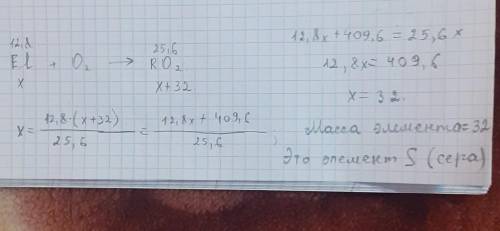 12,8 25,6
El + O₂ → RO₂
x x+32
x = 12,8·(x+32) / 25,6 = 12,8x + 409,6 / 25,6 ;
12,8x + 409,6 = 25,6x
12,8x = 409,6
x = 32.
Масса элемента = 32
Это элемент S (сера)